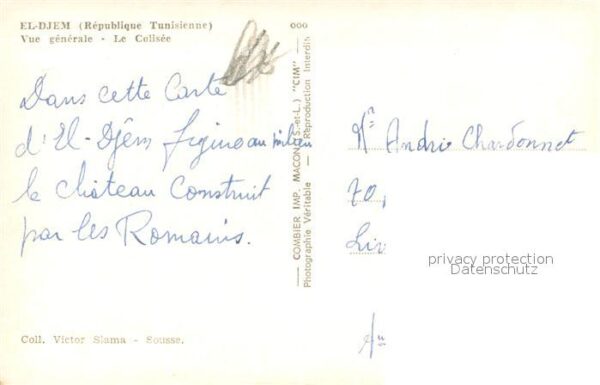 EL-DJEM (République Tunisienne)
Vue générale - Le Colisée
ooo
Dans cette Carte
d'El-Djêm figure au milieu
le château Construit
par les Romains.
Coll. Victor Slama - Sousse.
COMBIER IMP. MACON (S.-et-L.) "CIM"
Photographie Véritable - Reproduction Interdite
Mr André Chardonnet
70,
privacy protection
Datenschutz